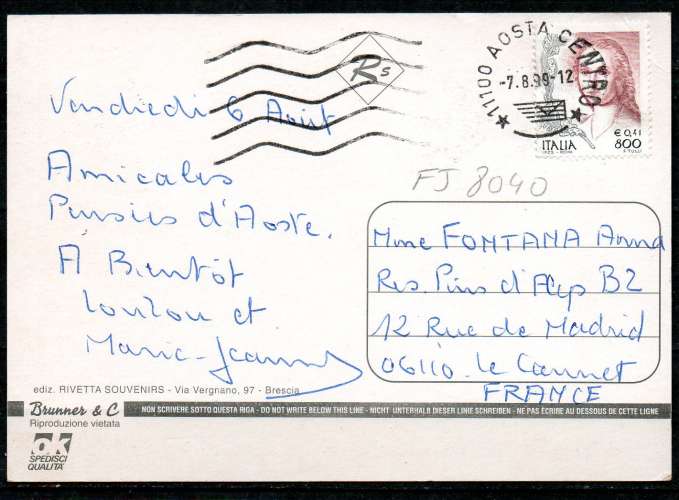 Vendredi 6 Août
Amicales
Pensées d'Aoste.
A Bientôt
Loulou et
Marie-Jeanne
Rs
11100 AOSTA CENTRO
-7.8.99-12
€ 0,41
ITALIA 800
FJ 8040
Mme FONTANA Anna
Res. Pins d'Alep B2
12 Rue de Madrid
06110 le Cannet
FRANCE
ediz. RIVETTA SOUVENIRS - Via Vergnano, 97 - Brescia
Brunner & C
Riproduzione vietata
NON SCRIVERE SOTTO QUESTA RIGA - DO NOT WRITE BELOW THIS LINE - NICHT UNTERHALB DIESER LINIE SCHREIBEN - NE PAS ÉCRIRE AU DESSOUS DE CETTE LIGNE
OK
SPEDISCI
QUALITA'